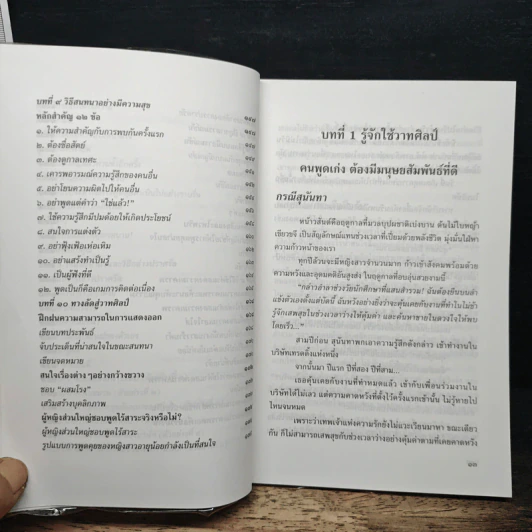 บทที่ ๙ วิธีสนทนาอย่างมีความสุข
หลักสำคัญ ๑๒ ข้อ
๑. ให้ความสำคัญกับการพบกันครั้งแรก
๒. ต้องซื่อสัตย์
๓. ต้องดูกาลเทศะ
๔. เคารพอารมณ์ความรู้สึกของคนอื่น
๕. อย่าโยนความผิดไปให้คนอื่น
๖. อย่าพูดแต่คำว่า "ใช่แล้ว!"
๗. ใช้ความรู้สึกมีปมด้อยให้เกิดประโยชน์
๘. สนใจการแต่งตัว
๙. อย่าฟุ้งเฟ้อเห่อเหิม
๑๐. อย่าแสร้งทำเป็นรู้
๑๑. เป็นผู้ฟังที่ดี
๑๒. พูดเป็นก็คือเกมการคิดต่อเนื่อง
บทที่ ๑๐ ทางลัดสู่วาทศิลป์
ฝึกฝนความสามารถในการแสดงออก
เขียนบทประพันธ์
จับประเด็นที่น่าสนใจในขณะสนทนา
เขียนจดหมาย
สนใจเรื่องต่าง ๆอย่างกว้างขวาง
ชอบ "ผสมโรง"
เสริมสร้างบุคลิกภาพ
ผู้หญิงส่วนใหญ่ชอบพูดไร้สาระจริงหรือไม่?
ผู้หญิงส่วนใหญ่ชอบพูดไร้สาระ
รูปแบบการพูดคุยของหญิงสาวอายุน้อยกำลังเป็นที่สนใจ
บทที่ 1 รู้จักใช้วาทศิลป์
คนพูดเก่ง ต้องมีมนุษยสัมพันธ์ที่ดี
กรณีสุนันทา
หน้าวสันต์คือฤดูกาลที่มวลบุปผชาติเบ่งบาน ต้นไม้ใบหญ้า
เขียวขจี เป็นสัญลักษณ์แทนช่วงเวลาที่เปี่ยมด้วยพลังชีวิต มุ่งมั่นใฝ่หา
ความก้าวหน้าของเรา
ทุกปีล้วนจะมีหญิงสาวจำนวนมาก ก้าวเข้าสังคมพร้อมด้วย
ความหวังและอุดมคติอันสูงส่ง ในฤดูกาลที่อบอุ่นสวยงามนี้
"กล่าวอำลาช่วงวัยนักศึกษาที่แสนสำราญ! ฉันต้องยืนบนลำ
แข้งตัวเองตั้งแต่บัดนี้ ฉันหวังอย่างยิ่งว่าจะคุ้นเคยกับงานที่ทำในไม่ช้า
รู้จักเสพสุขในช่วงเวลาว่างให้คุ้มค่า และค้นหาชายในดวงใจให้พบ
โดยเร็ว..."
สามปีก่อน สุนันทาพกเอาความรู้สึกดังกล่าว เข้าทำงานใน
บริษัทเทรดดิ้งแห่งหนึ่ง
จากนั้นมา ปีแรก ปีที่สอง ปีที่สาม...
เธอคุ้นเคยกับงานที่ทำหมดแล้ว เข้ากับเพื่อนร่วมงานใน
บริษัทได้ไม่เลว แต่ความคาดหวังที่ตั้งไว้ครั้งแรกเข้านั้น ไม่รู้หายไป
ไหนจนหมด
เพราะว่าเทพเจ้าแห่งความรักยังไม่แวะเวียนมาหา ขณะเดียว
กัน ก็ไม่สามารถเสพสุขกับช่วงเวลาว่างอย่างคุ้มค่าตามที่เคยคาดหวัง
๑๓